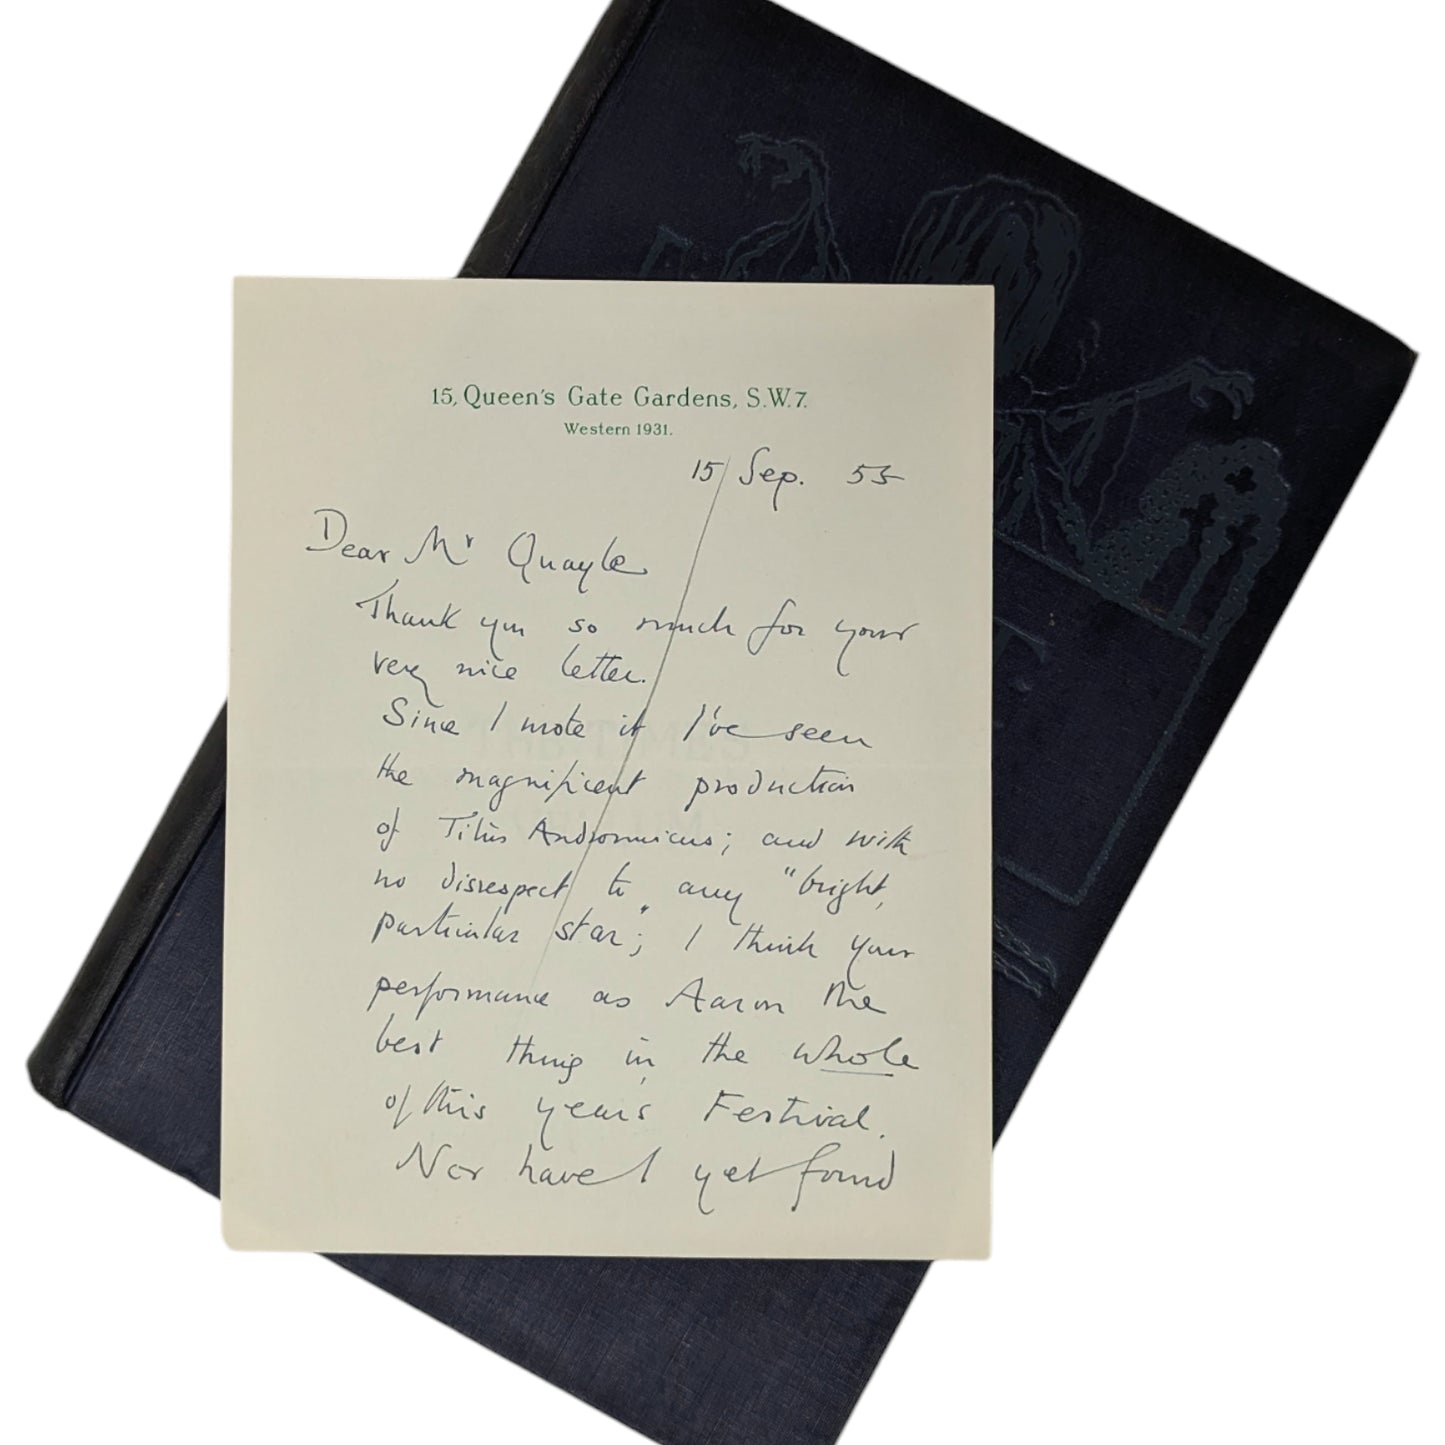 15, Queen's Gate Gardens, S.W.7.
Western 1931.
15/ Sep. 55
Dear Mr Quayle
Thank you so much for your
very nice letter.
Since I wrote it I've seen
the magnificent production
of Titus Andronicus; and with
no disrespect to any "bright,
particular star"; I think your
performance as Aaron the
best thing in the whole
of this years Festival.
Nor have I yet found